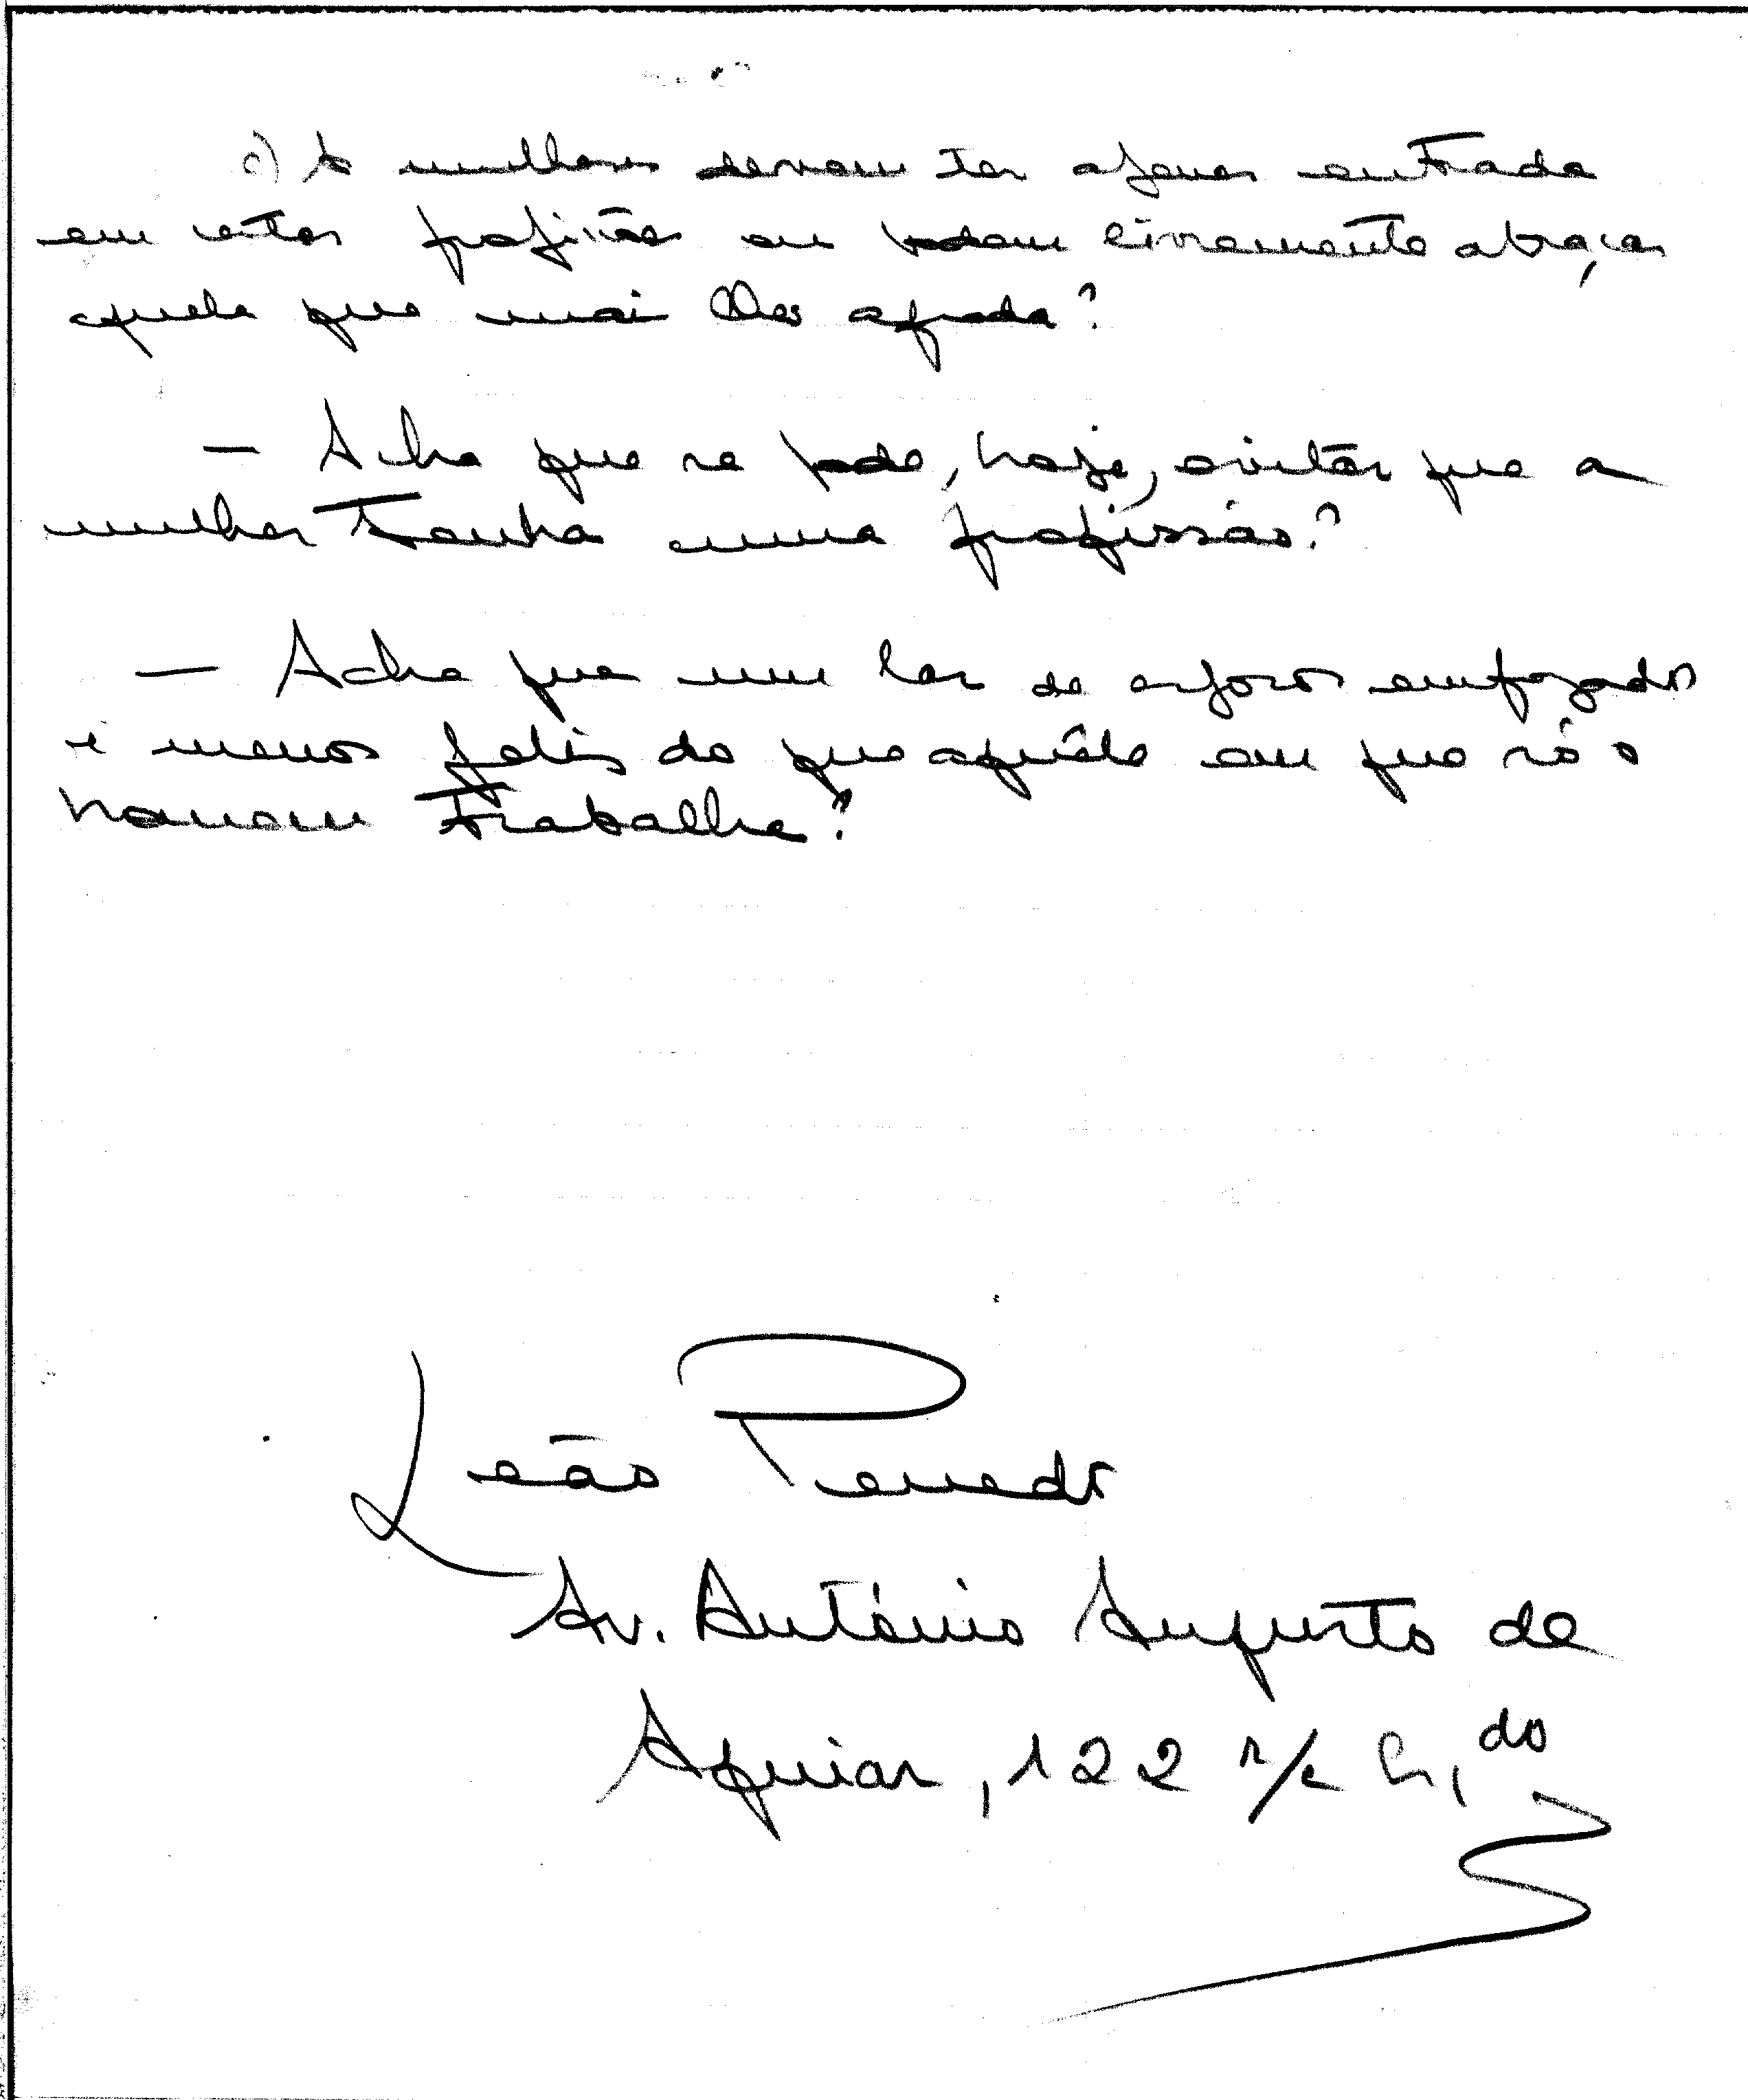 c) As mulheres devem ter apenas entrada
em certas profissões ou podem livremente abraçar
aquela que mais lhes agrada?
— Acha que se pode, hoje, evitar que a
mulher tenha uma profissão?
— Acha que um lar de esposos empregados
é menos feliz do que aquêle em que só o
homem trabalha?
Leão Penedo
Av. António Augusto de
Aguiar, 122 r/c E,do